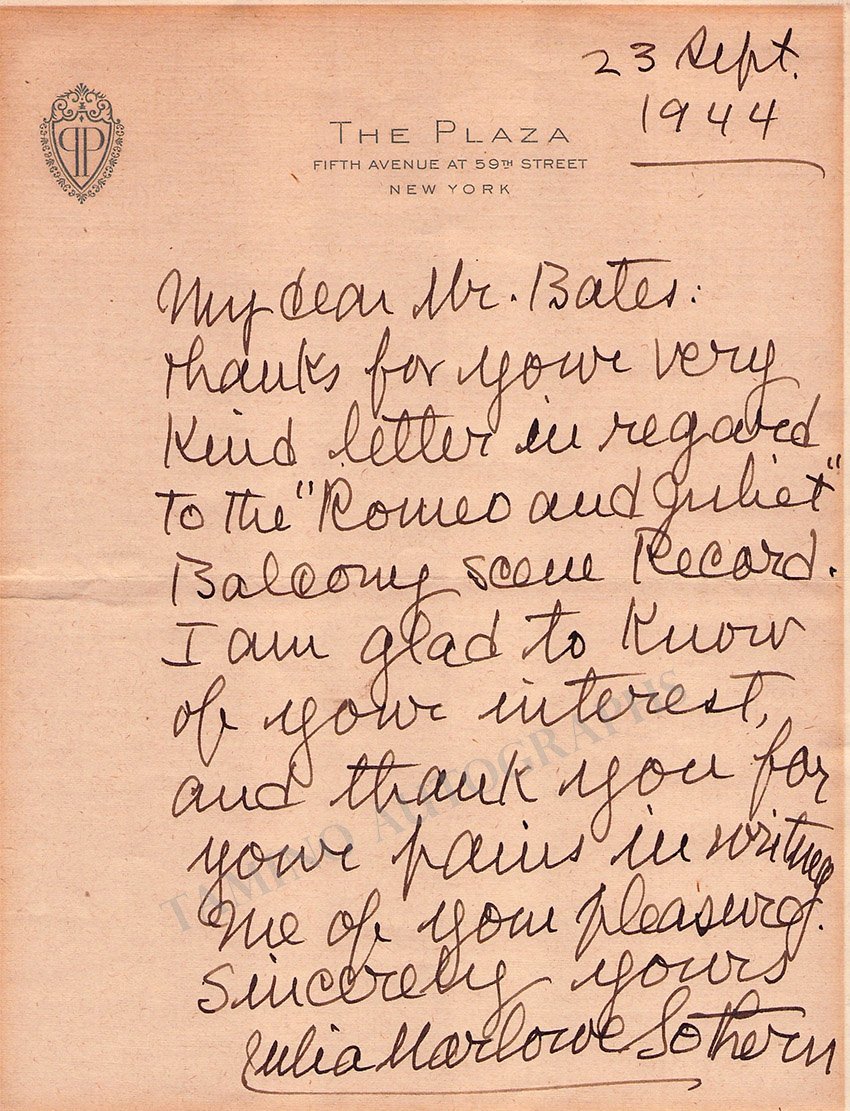 23 Sept.
1944
PP
THE PLAZA
FIFTH AVENUE AT 59TH STREET
NEW YORK
My dear Mr. Bates:
thanks for your very
Kind letter in regard
to the "Romeo and Juliet"
Balcony scene Record.
I am glad to Know
of your interest,
and thank you for
your pains in writing
me of your pleasure.
Sincerely yours
Julia Marlowe Sothern
TAMINO AUTOGRAPHS